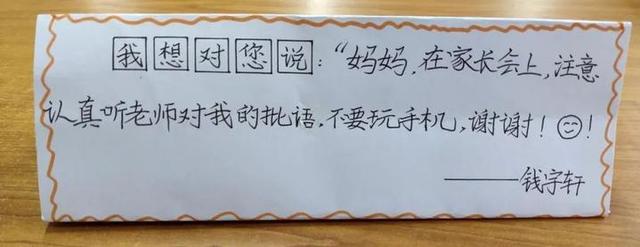 我想对您说：“妈妈，在家长会上，注意
认真听老师对我的批语，不要玩手机，谢谢！☺！
——钱宇轩